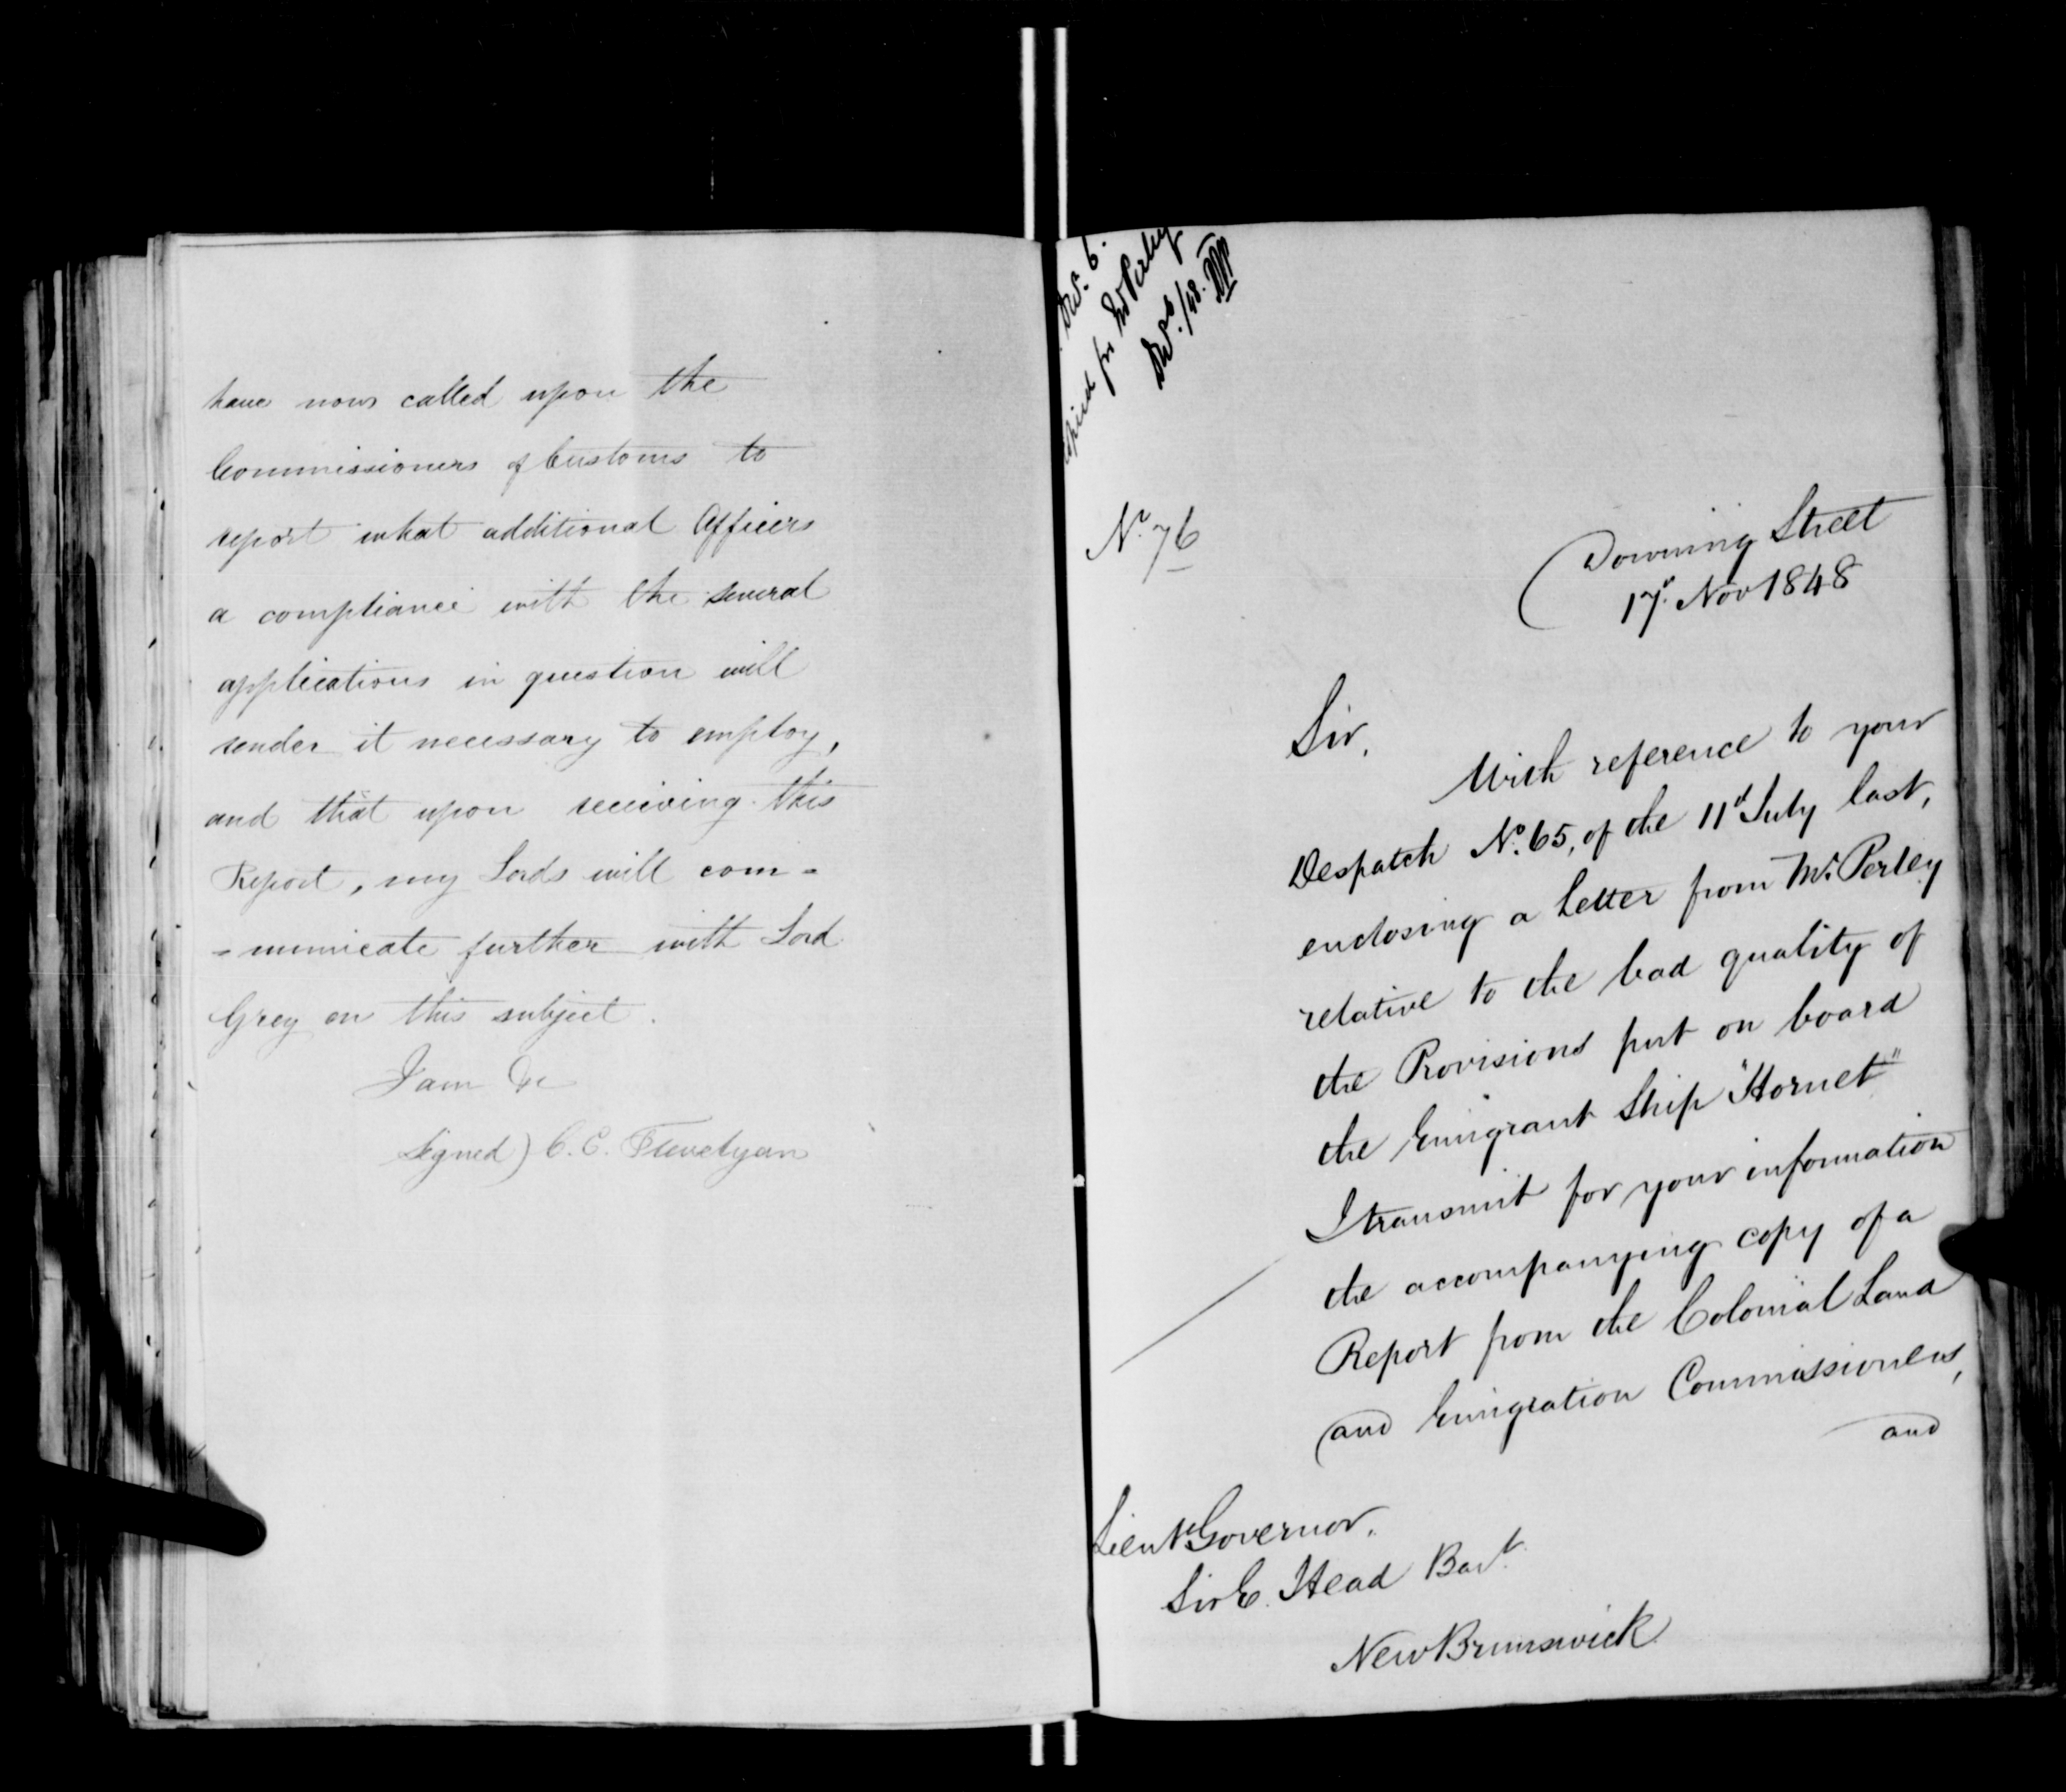 have now called upon the
Commissioners of Customs to
report what additional Officers
a compliance with the several
applications in question will
render it necessary to employ,
and that upon receiving this
Report, my Lords will com=
=municate further with Lord
Grey on this subject.
I am &c
Signed) C. E. Trevelyan
Decr. 6.
copied for Mr Perley
Decr. 6/48.
No. 76
Downing Street
17th. Nov 1848
Sir,
With reference to your
Despatch No. 65, of the 11th July last,
enclosing a Letter from Mr. Perley
relative to the bad quality of
the Provisions put on board
the Emigrant Ship "Hornet"
I transmit for your information
the accompanying copy of a
Report from the Colonial Land
and Emigration Commissioners,
and
Lieut Governor,
Sir E. Head Bart.
New Brunswick